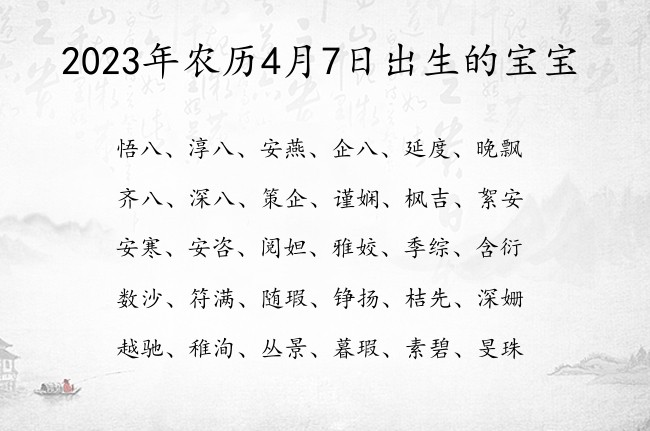 2023年农历4月7日出生的宝宝
悟八、淳八、安燕、企八、延度、晚飘
齐八、深八、策企、谨娴、枫吉、絮安
安寒、安咨、阅妲、雅姣、季综、含衍
数沙、符满、随瑕、铮扬、桔先、深姗
越驰、稚洵、丛景、暮瑕、素碧、旻珠